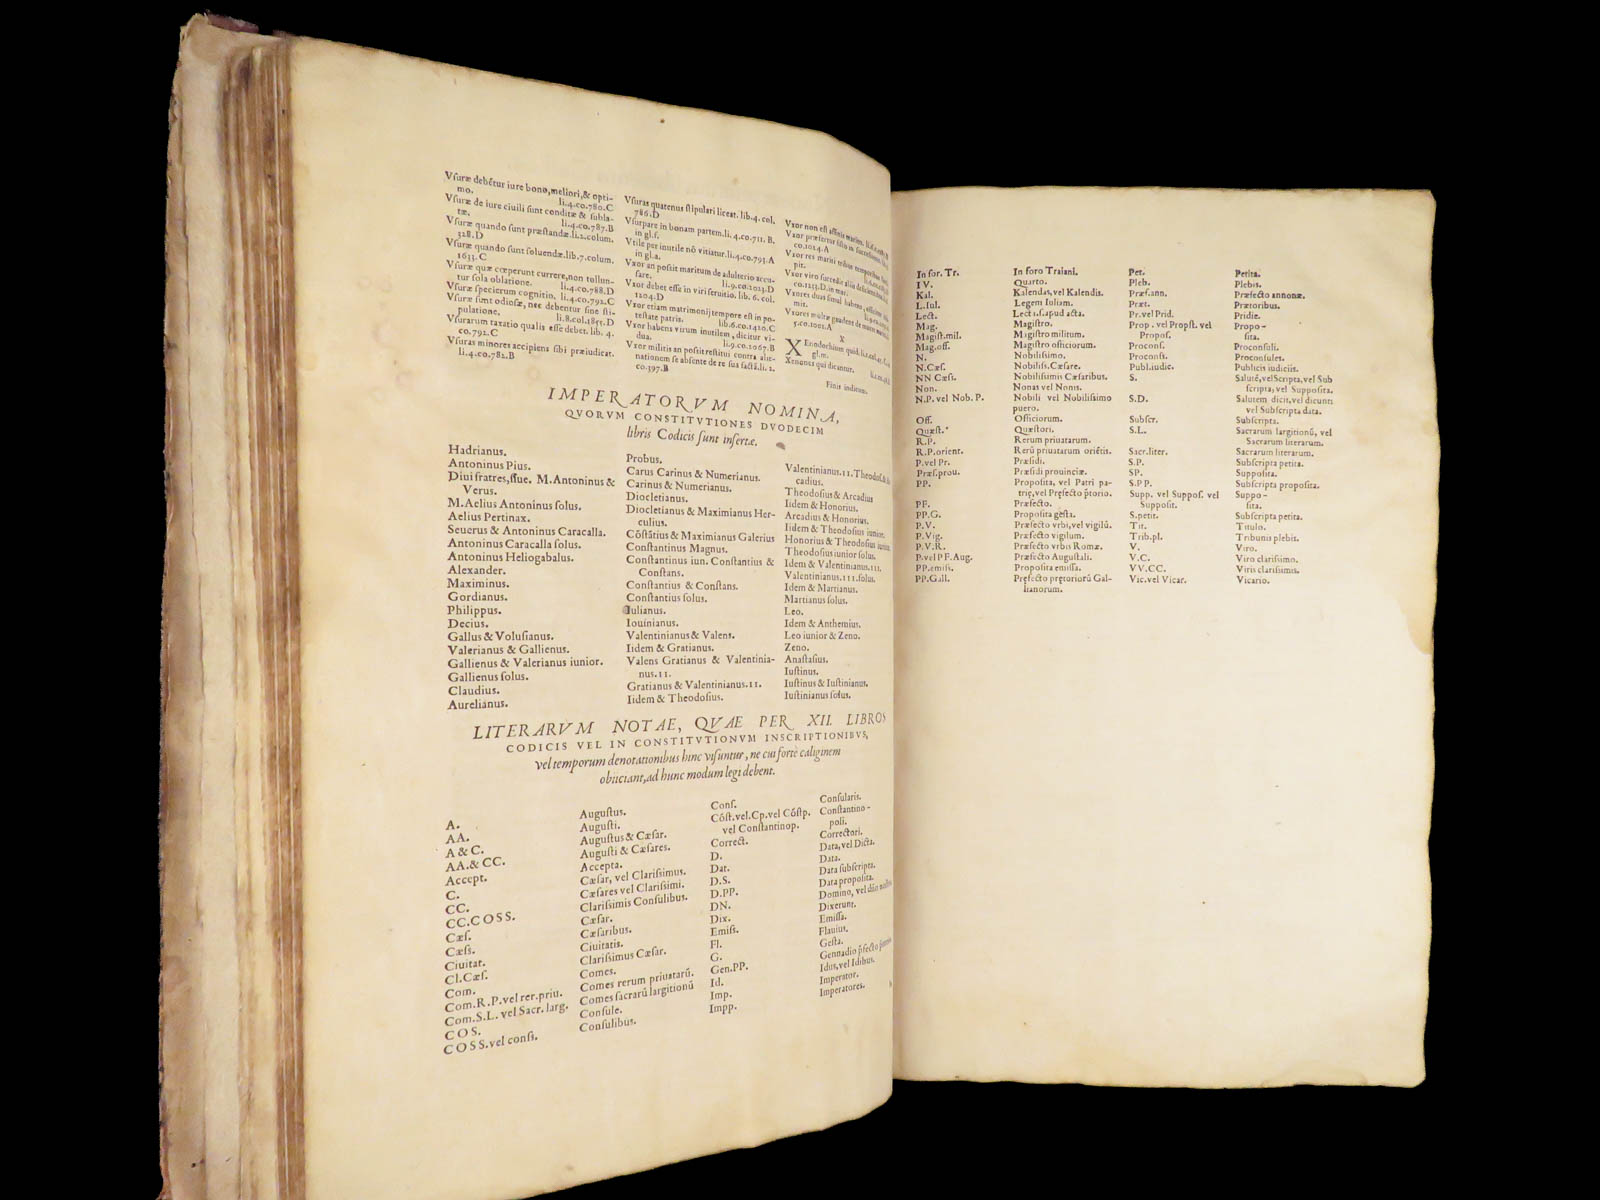 Vſuræ debētur iure bono, meliori, & opti-
mo. li.4.co.780.C
Vſuræ de iure ciuili ſunt conditæ & ſubla-
tæ. li.4.co.787.B
Vſuræ quando ſunt præſtandæ.li.2.colum.
328.D
Vſuræ quando ſunt ſoluendæ.lib.7.colum.
1633.C
Vſuræ quæ cœperunt currere, non tollun-
tur ſola oblatione. li.4.co.788.D
Vſuræ ſpecierum cognitio. li.4.co.792.C
Vſuræ ſunt odioſæ, nec debentur ſine ſti-
pulatione. li.8.col.1855.D
Vſurarum taxatio qualis eſſe debet. lib. 4.
co.792.C
Vſuras minores accipiens ſibi præiudicat.
li.4.co.782.B
Vſuras quatenus ſtipulari liceat. lib.4. col.
786.D
Vſurpare in bonam partem.li.4.co.711.B.
in gl.f.
Vtile per inutile nō vitiatur.li.4.co.793.A
in gl.a.
Vxor an poſſit maritum de adulterio accu-
ſare. li.9.co.2023.D
Vxor debet eſſe in viri ſeruitio. lib. 6. col.
1204.D
Vxor etiam matrimonij tempore eſt in po-
teſtate patris. lib.6.co.1420.C
Vxor habens virum inutilem, dicitur vi-
dua. li.9.co.2067.B
Vxor militis an poſſit reſtitui contra alie-
nationem ſe abſente de re ſua factā.li.2.
co.397.B
Vxor non eſt affinis mariti.
Vxor præfertur fiſco in ſucceſſione
co.1024.A
Vxor res mariti
Vxor viro ſuccedit
co.1253.D.in mar.
Vxores duas ſimul habens,
Vxores multæ gaudent de morte
5.co.1002.A
X
Xenodochium quid.
gl.m.
Xenones qui dicantur.
Finis indicum.
IMPERATORVM NOMINA,
QVORVM CONSTITVTIONES DVODECIM
libris Codicis ſunt inſertæ.
Hadrianus.
Antoninus Pius.
Diui fratres, ſiue. M. Antoninus &
Verus.
M.Aelius Antoninus ſolus.
Aelius Pertinax.
Seuerus & Antoninus Caracalla.
Antoninus Caracalla ſolus.
Antoninus Heliogabalus.
Alexander.
Maximinus.
Gordianus.
Philippus.
Decius.
Gallus & Voluſianus.
Valerianus & Gallienus.
Gallienus & Valerianus iunior.
Gallienus ſolus.
Claudius.
Aurelianus.
Probus.
Carus Carinus & Numerianus.
Carinus & Numerianus.
Diocletianus.
Diocletianus & Maximianus Her-
culius.
Cōſtātius & Maximianus Galerius
Conſtantinus Magnus.
Conſtantinus iun. Conſtantius &
Conſtans.
Conſtantius & Conſtans.
Conſtantius ſolus.
Iulianus.
Iouinianus.
Valentinianus & Valens.
Iidem & Gratianus.
Valens Gratianus & Valentinia-
nus.II.
Gratianus & Valentinianus.II.
Iidem & Theodoſius.
Valentinianus.II.Theodoſ.&
cadius.
Theodoſius & Arcadius
Iidem & Honorius.
Arcadius & Honorius.
Iidem & Theodoſius iunior.
Honorius & Theodoſius iunior.
Theodoſius iunior ſolus.
Idem & Valentinianus.III.
Valentinianus.III.ſolus.
Idem & Martianus.
Martianus ſolus.
Leo.
Idem & Anthemius.
Leo iunior & Zeno.
Zeno.
Anaſtaſius.
Iuſtinus.
Iuſtinus & Iuſtinianus.
Iuſtinianus ſolus.
LITERARVM NOTAE, QVAE PER XII. LIBROS
CODICIS VEL IN CONSTITVTIONVM INSCRIPTIONIBVS,
vel temporum denotationibus hinc viſuntur, ne cui forte caliginem
obijciant, ad hunc modum legi debent.
A. Auguſtus.
AA. Auguſti.
A & C. Auguſtus & Cæſar.
AA.& CC. Auguſti & Cæſares.
Accept. Accepta.
C. Cæſar, vel Clariſſimus.
CC. Cæſares vel Clariſſimi.
CC.COSS. Clariſſimis Conſulibus.
Cæſ. Cæſar.
Cæſſ. Cæſaribus.
Ciuitat. Ciuitatis.
Cl.Cæſ. Clariſſimus Cæſar.
Com. Comes.
Com.R.P.vel rer.priu. Comes rerum priuatarū.
Com.S.L. vel Sacr. larg. Comes ſacrarū largitionū
COS. Conſule.
COSS.vel conſſ. Conſulibus.
Conſ. Conſularis.
Cōſt.vel.Cp.vel Cōſtp. Conſtantino-
vel Conſtantinop. poli.
Correct. Correctori.
D. Data, vel Dicta.
Dat. Data.
D.S. Data ſubſcripta.
D.PP. Data propoſita.
DN. Domino, vel
Dix. Dixerunt.
Emiſſ. Emiſſa.
Fl. Flauius.
G. Geſta.
Gen.PP. Gennadio p̄fecto
Id. Idus, vel Idibus.
Imp. Imperator.
Impp. Imperatores.
In for. Tr. In foro Traiani.
IV. Quarto.
Kal. Kalendas, vel Kalendis.
L.Iul. Legem Iuliam.
Lect. Lecta apud acta.
Mag. Magiſtro.
Magiſt.mil. Magiſtro militum.
Mag.off. Magiſtro officiorum.
N. Nobiliſſimo.
N.Cæſ. Nobiliſſ.Cæſare.
NN Cæſſ. Nobiliſſimis Cæſaribus.
Non. Nonas vel Nonis.
N.P. vel Nob. P. Nobili vel Nobiliſſimo
puero.
Off. Officiorum.
Quæſt. Quæſtori.
R.P. Rerum priuatarum.
R.P.orient. Rerū priuatarum oriētis.
P.vel Pr. Præſidi.
Præſ.prou. Præſidi prouinciæ.
PP. Propoſita, vel Patri pa-
trię, vel Pręfecto p̄torio.
PF. Præfecto.
PP.G. Propoſita geſta.
P.V. Præfecto vrbi, vel vigilū.
P.Vig. Præfecto vigilum.
P.V.R. Præfecto vrbis Romæ.
P.vel PF.Aug. Præfecto Auguſtali.
PP.emiſſ. Propoſita emiſſa.
PP.Gall. Pręfecto pretoriorū Gal-
lianorum.
Pet. Petita.
Pleb. Plebis.
Præf.ann. Præfecto annonæ.
Præt. Prætoribus.
Pr.vel Prid. Pridie.
Prop. vel Propſt. vel Propo-
Propoſ. ſita.
Proconſ. Proconſuli.
Proconſſ. Proconſules.
Publ.iudic. Publicis iudiciis.
S. Salutē, vel Scripta, vel Sub
ſcripta, vel Suppoſita.
S.D. Salutem dicit, vel dicunt
vel Subſcripta data.
Subſcr. Subſcripta.
S.L. Sacrarum largitionū, vel
Sacrarum literarum.
Sacr.liter. Sacrarum literarum.
S.P. Subſcripta petita.
SP. Suppoſita.
S.PP. Subſcripta propoſita.
Supp. vel Suppoſ. vel Suppo-
Suppoſit. ſita.
S.petit. Subſcripta petita.
Tit. Titulo.
Trib.pl. Tribunis plebis.
V. Viro.
V.C. Viro clariſſimo.
VV.CC. Viris clariſſimis.
Vic.vel Vicar. Vicario.